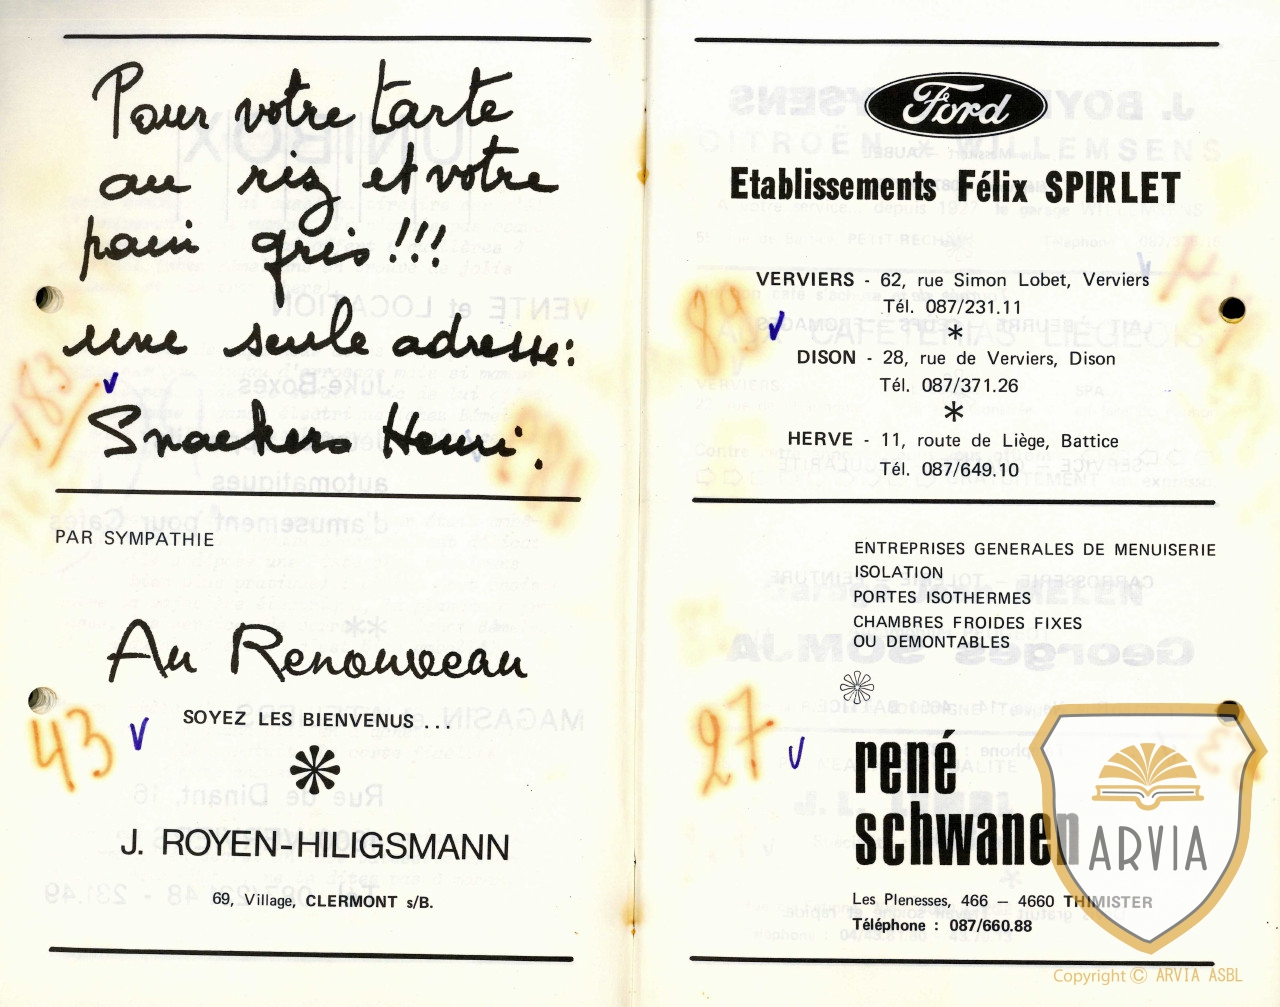 Pour votre tarte
au riz et votre
pain gris!!!
une seule adresse:
183
Snackers Henri.
PAR SYMPATHIE
Au Renouveau
SOYEZ LES BIENVENUS ...
43
J. ROYEN-HILIGSMANN
69, Village, CLERMONT s/B.
Ford
Etablissements Félix SPIRLET
VERVIERS - 62, rue Simon Lobet, Verviers
Tél. 087/231.11
*
89
DISON - 28, rue de Verviers, Dison
Tél. 087/371.26
*
HERVE - 11, route de Liège, Battice
Tél. 087/649.10
ENTREPRISES GENERALES DE MENUISERIE
ISOLATION
PORTES ISOTHERMES
CHAMBRES FROIDES FIXES
OU DEMONTABLES
27
rené
schwanen
Les Plenesses, 466 — 4660 THIMISTER
Téléphone : 087/660.88
ARVIA
Copyright © ARVIA ASBL